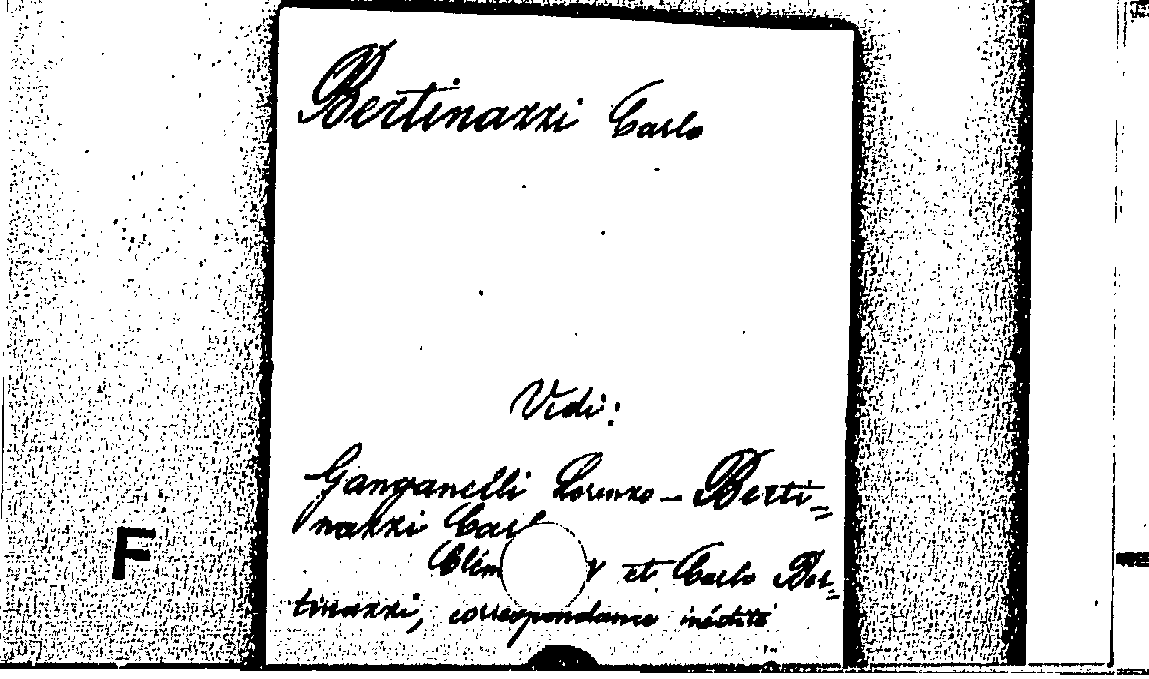 Bertinazzi Carlo
Vidi:
Ganganelli Lorenzo - Berti=
nazzi Carl
Clém et Carlo Ber=
F
tinazzi, correspondance inédite